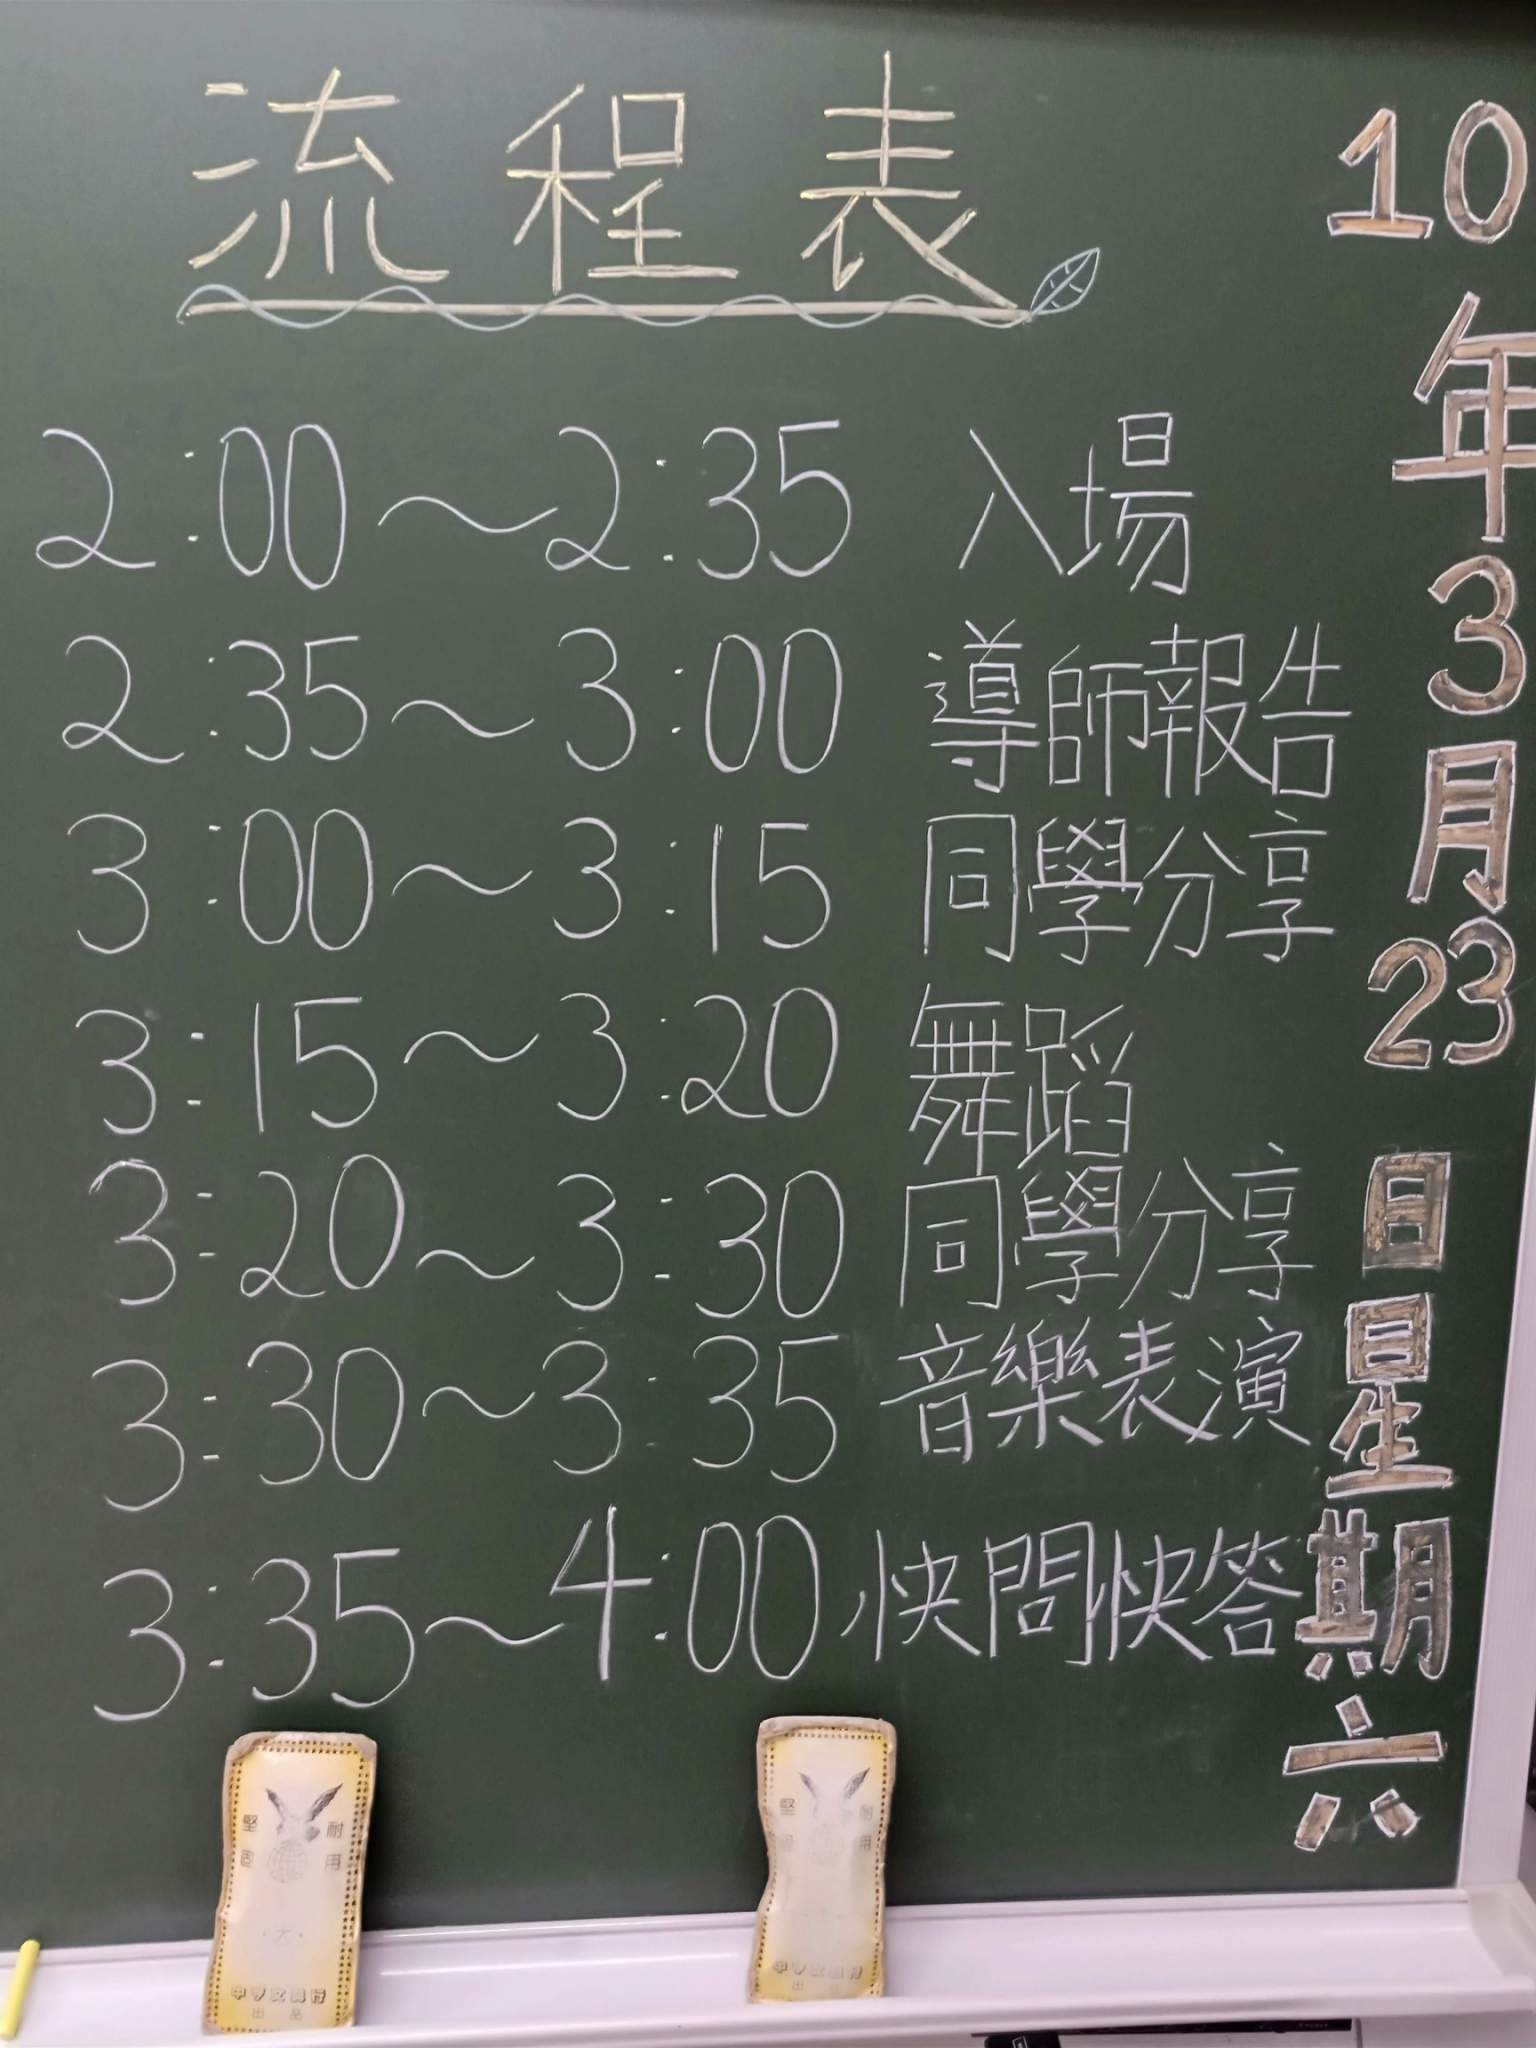 流程表
2:00～2:35 入場
2:35～3:00 導師報告
3:00～3:15 同學分享
3:15～3:20 舞蹈
3:20～3:30 同學分享
3:30～3:35 音樂表演
3:35～4:00 快問快答
10年3月23日星期六
堅固耐用
大
中學文具行
出品
堅固耐用
出品